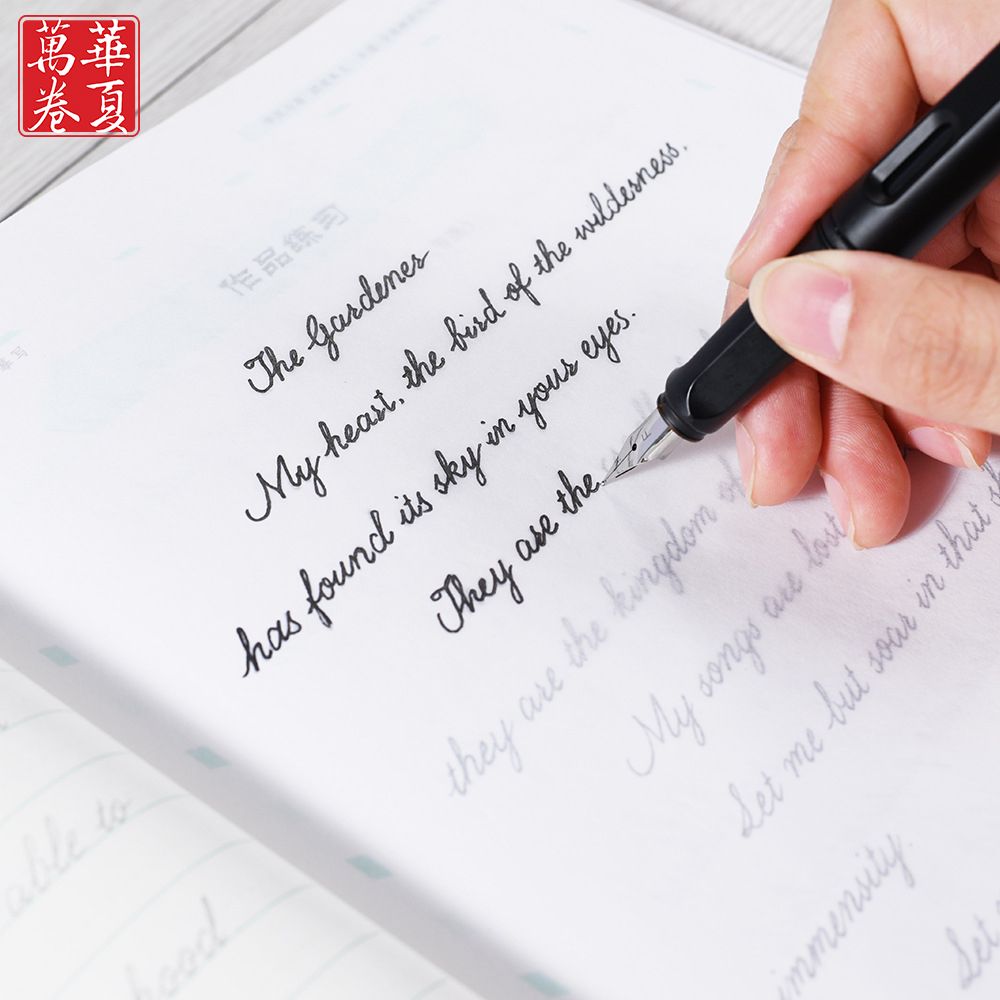 華夏
萬卷
作品练习
The Gardener
My heart, the bird of the wilderness,
has found its sky in your eyes.
They are the
they are the kingdom of
My songs are lost
Let me but soar in that
immensity.
Let
able to
hood